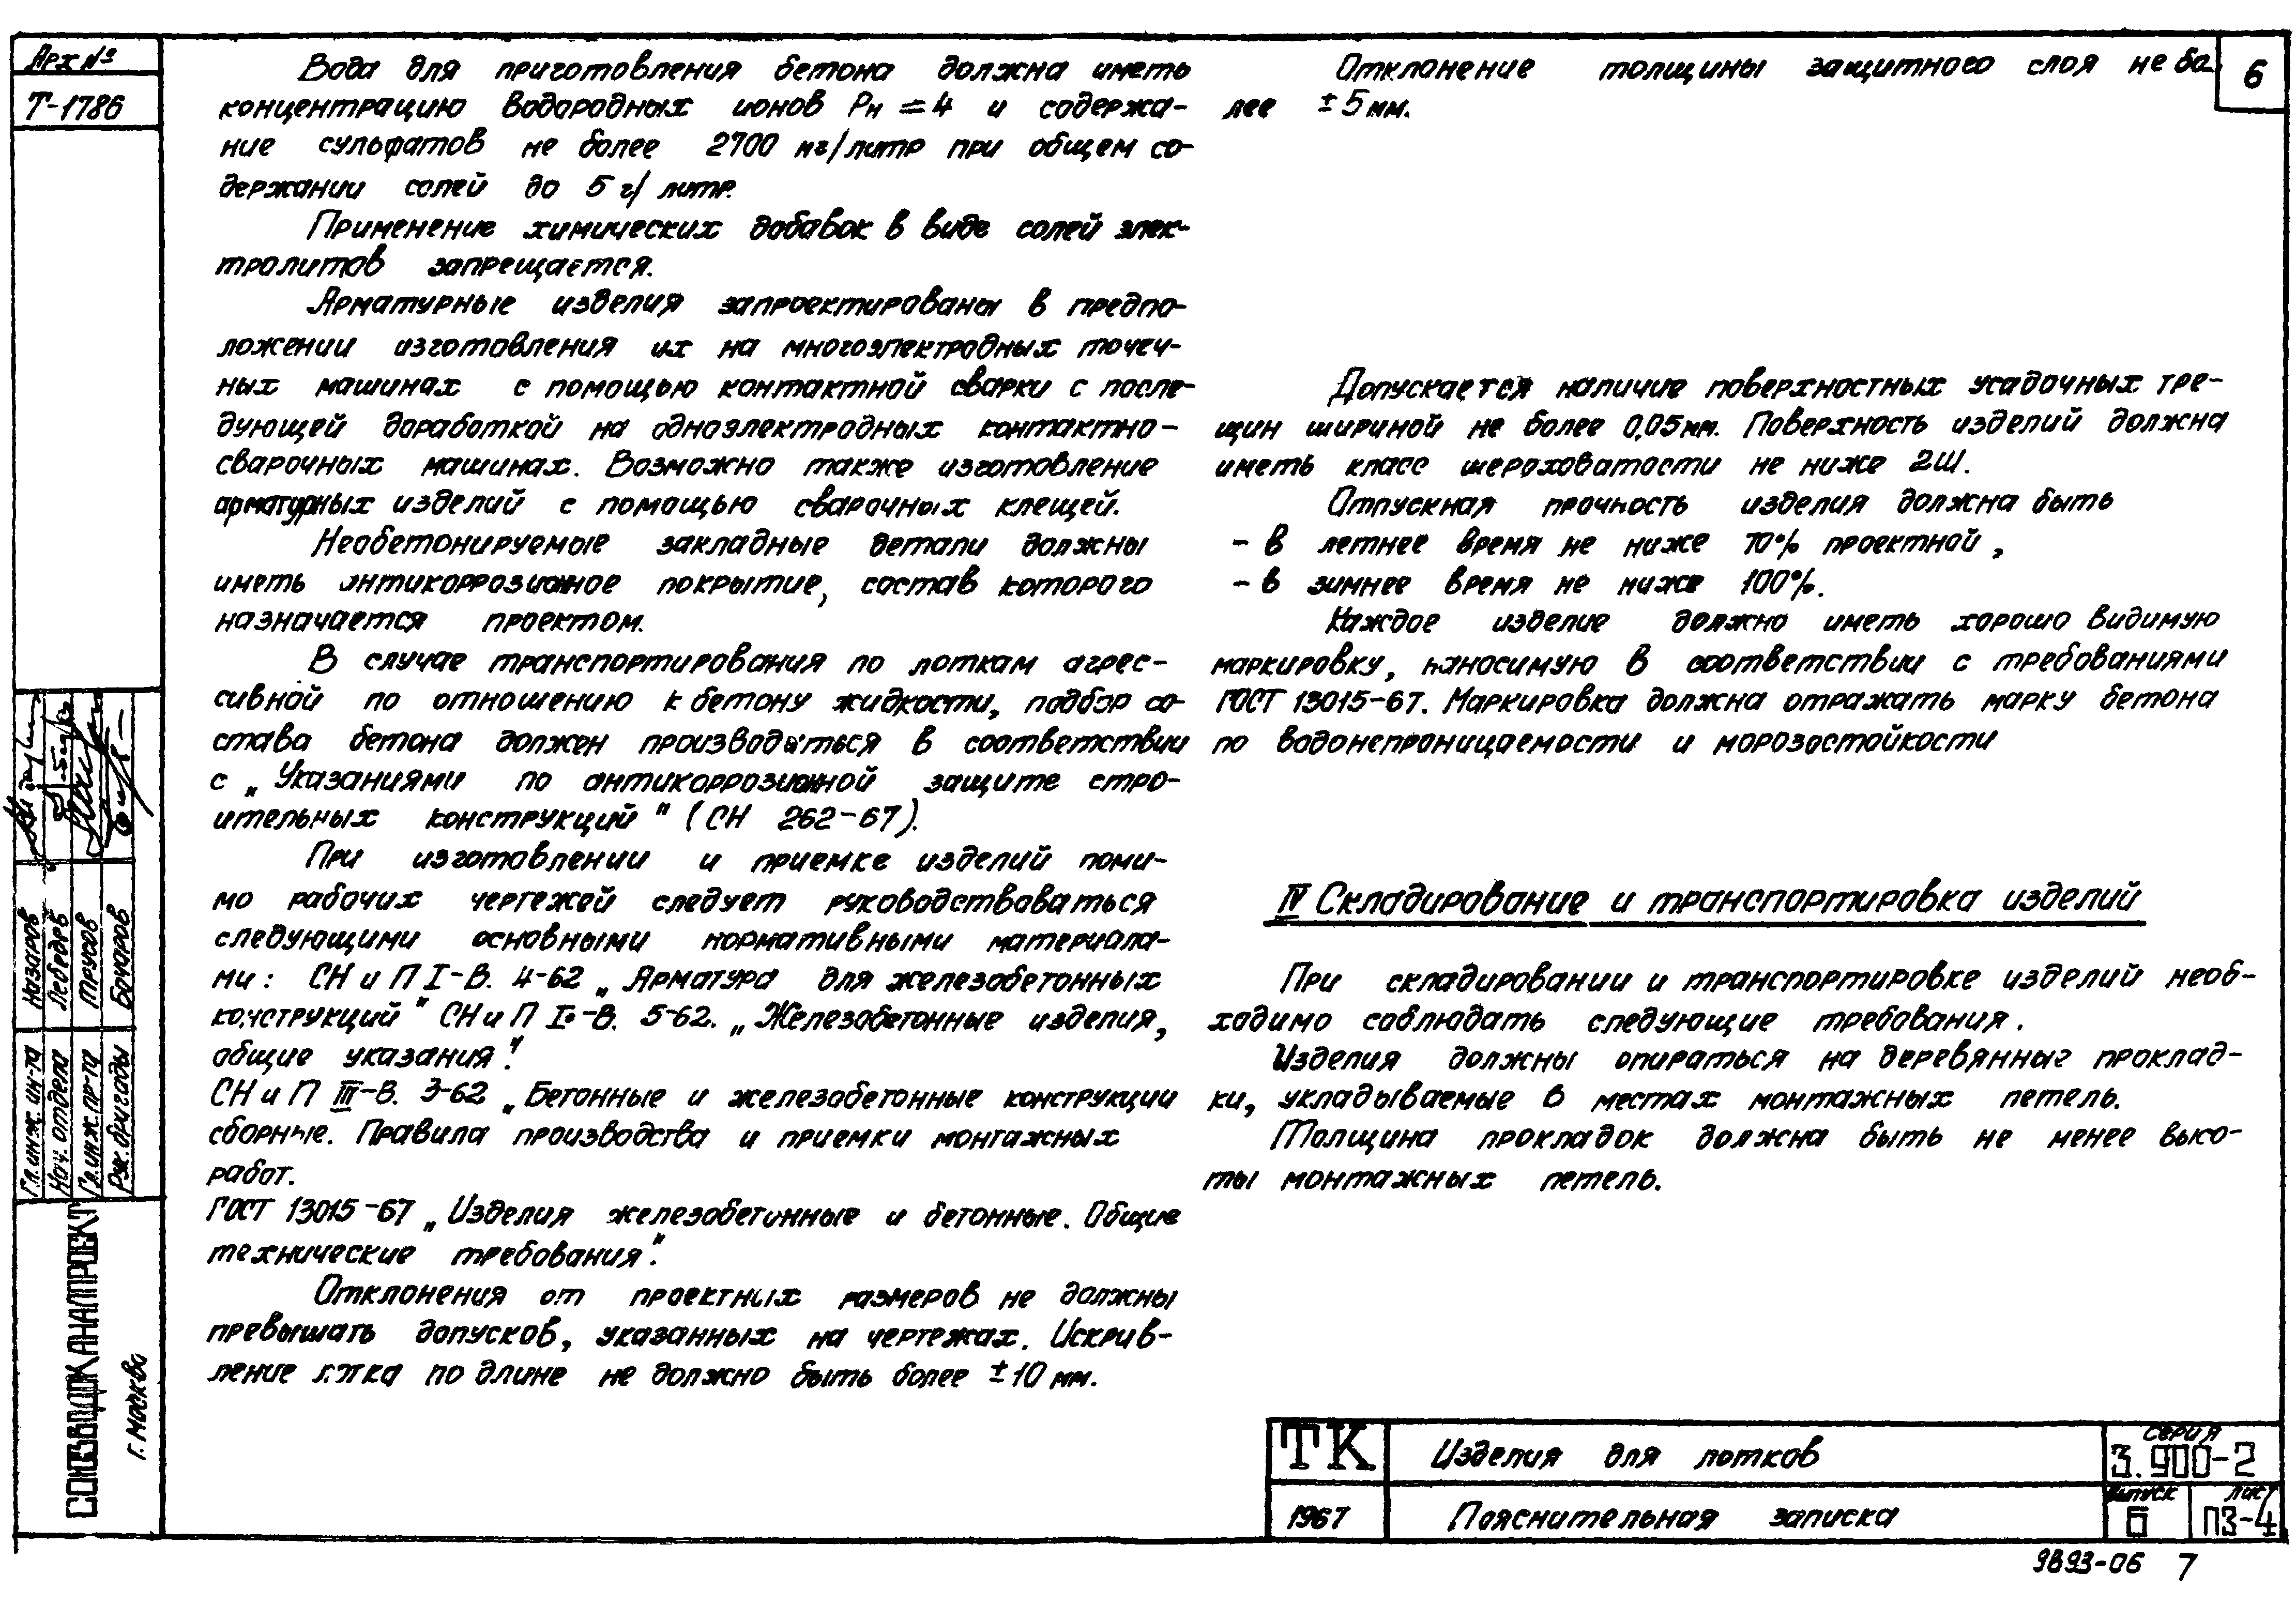 Арх №
Т-1786
6
Вода для приготовления бетона должна иметь
концентрацию водородных ионов Рн = 4 и содержа-
ние сульфатов не более 2700 мг/литр при общем со-
держании солей до 5 г/литр.
Применение химических добавок в виде солей элек-
тролитов запрещается.
Арматурные изделия запроектированы в предпо-
ложении изготовления их на многоэлектродных точеч-
ных машинах с помощью контактной сварки с после-
дующей доработкой на одноэлектродных контактно-
сварочных машинах. Возможно также изготовление
арматурных изделий с помощью сварочных клещей.
Необетонируемые закладные детали должны
иметь антикоррозионное покрытие, состав которого
назначается проектом.
В случае транспортирования по лоткам агрес-
сивной по отношению к бетону жидкости, подбор со-
става бетона должен производиться в соответствии
с „Указаниями по антикоррозионной защите стро-
ительных конструкций" (СН 262-67).
При изготовлении и приемке изделий поми-
мо рабочих чертежей следует руководствоваться
следующими основными нормативными материала-
ми: СН и П I-В. 4-62 „Арматура для железобетонных
конструкций" СН и П I-В. 5-62. „Железобетонные изделия,
общие указания".
СН и П III-В. 3-62 „Бетонные и железобетонные конструкции
сборные. Правила производства и приемки монтажных
работ.
ГОСТ 13015-67 „Изделия железобетонные и бетонные. Общие
технические требования".
Отклонения от проектных размеров не должны
превышать допусков, указанных на чертежах. Искрив-
ление лотка по длине не должно быть более ±10 мм.
Отклонение толщины защитного слоя не бо
лее ±5 мм.
Допускается наличие поверхностных усадочных тре-
щин шириной не более 0,05 мм. Поверхность изделий должна
иметь класс шероховатости не ниже 2Ш.
Отпускная прочность изделия должна быть
- в летнее время не ниже 70% проектной,
- в зимнее время не ниже 100%.
Каждое изделие должно иметь хорошо видимую
маркировку, наносимую в соответствии с требованиями
ГОСТ 13015-67. Маркировка должна отражать марку бетона
по водонепроницаемости и морозостойкости
IV Складирование и транспортировка изделий
При складировании и транспортировке изделий необ-
ходимо соблюдать следующие требования.
Изделия должны опираться на деревянные проклад-
ки, укладываемые в местах монтажных петель.
Толщина прокладок должна быть не менее высо-
ты монтажных петель.
Гл. инж. ин-та Назаров
Нач. отдела Лебедев
Гл. инж. пр-та Трусов
Рук. бригады Бочаров
СОЮЗВОДОКАНАЛПРОЕКТ
г. Москва
ТК
Изделия для лотков
серия
3.900-2
1967
Пояснительная записка
выпуск
6
лист
ПЗ-4
9893-06 7